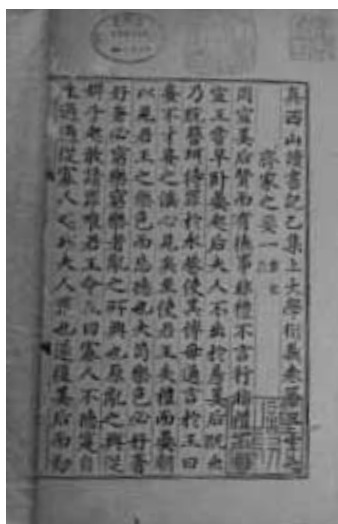 真西山讀書記乙集上大學衍義卷第三十
齊家之要一
周宣姜后賢而有德事非禮不言行非禮不動
宣王嘗早卧晏起后夫人不出於房姜后既出
乃脫簪珥待罪於永巷使其傅母通言於王曰
妾不才妾之淫心見矣至使君王失禮而晏朝
以見君王之樂色而忘德也夫苟樂色必好奢
好奢必窮樂窮樂者亂之所興也原亂之興從
婢子起敢請罪唯君王命王曰寡人不德寔自
生過過從寡人起非夫人罪也遂復姜后而勤